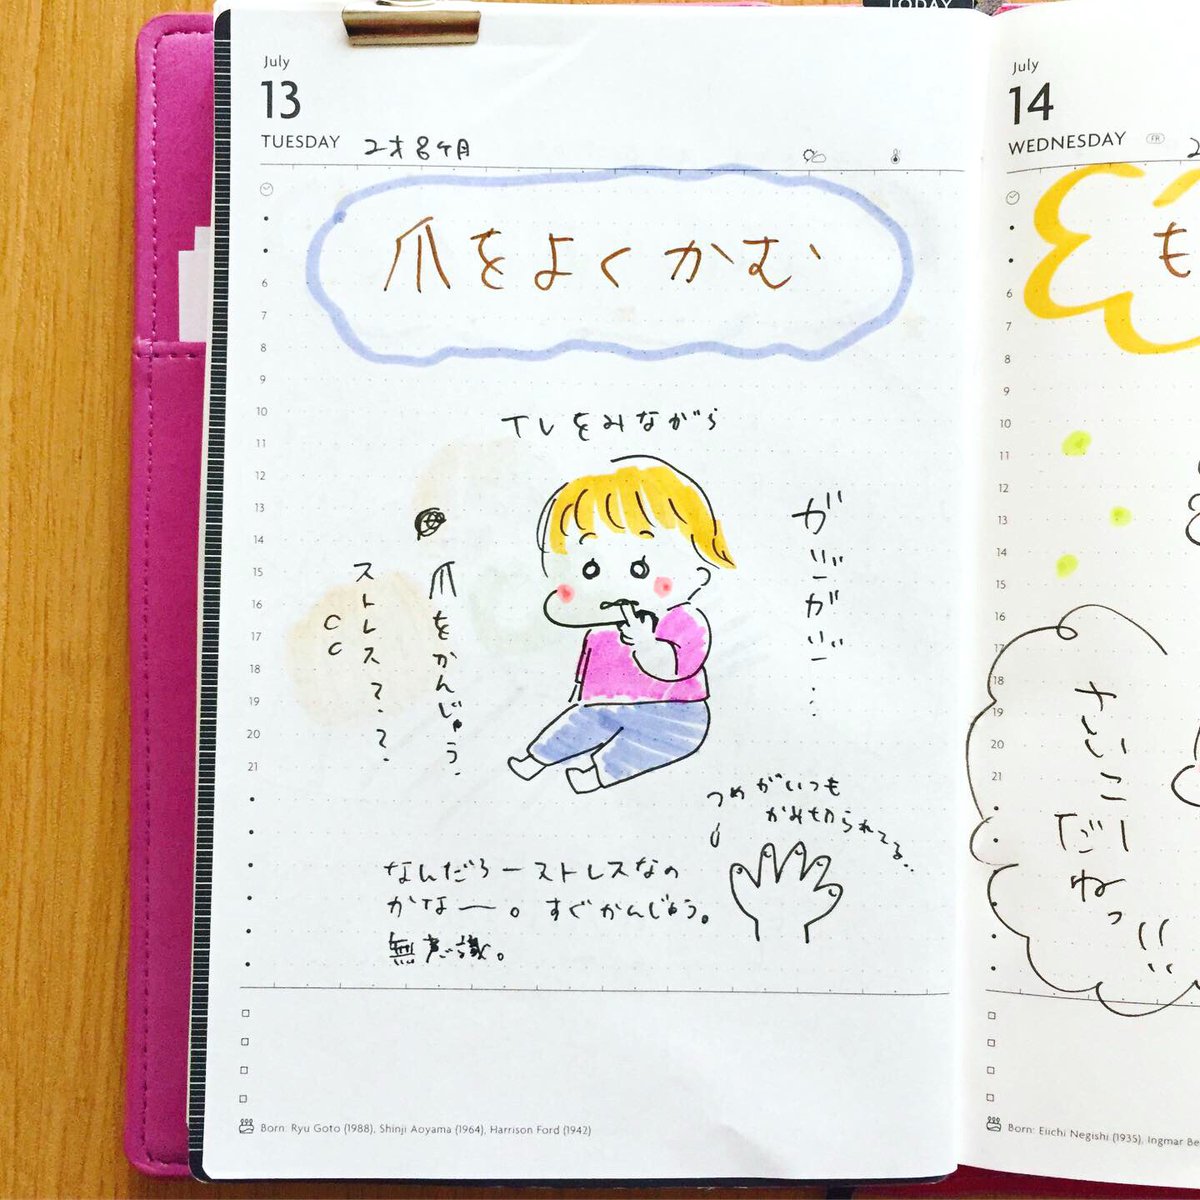 TODAY
July
13
TUESDAY 2才8ヶ月
爪をよくかむ
6
7
8
9
10
11
12
13
14
15
16
17
18
19
20
21
TVをみながら
ガジガジ…
爪をかんじゅう.
ストレス??
つめがいつも
かみ切られてる..
なんだろーストレスなの
かなー。すぐかんじゅう。
無意識。
Born: Ryu Goto (1988), Shinji Aoyama (1964), Harrison Ford (1942)
July
14
WEDNESDAY FR 2
も
6
7
8
9
10
11
12
13
14
15
16
17
18
19
20
21
さいこー
だねっ
Born: Eiichi Negishi (1935), Ingmar Be